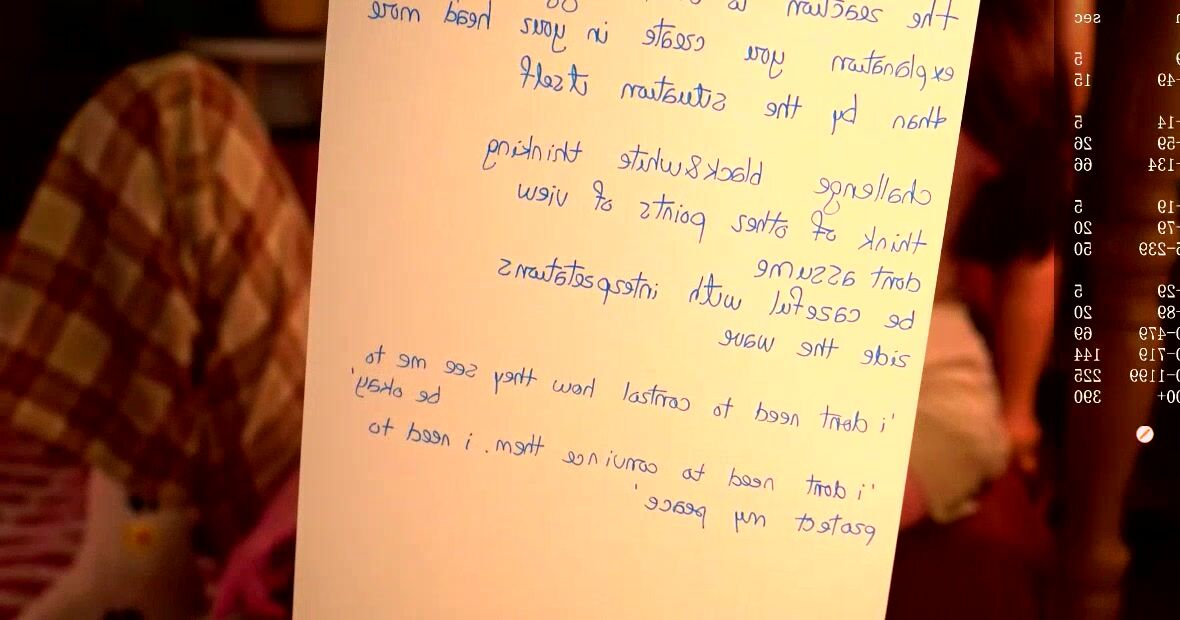 the reaction
explanation you create in your head more
than by the situation itself
challenge black&white thinking
think of other points of view
dont assume
be careful with interpretations
ride the wave
'i dont need to control how they see me to
be okay'
'i dont need to convince them. i need to
protect my peace'
sec
9 5
-49 15
-14 5
-59 26
-134 66
-19 5
-79 20
5-239 50
-29 5
-89 20
0-479 69
0-719 144
0-1199 225
00+ 390